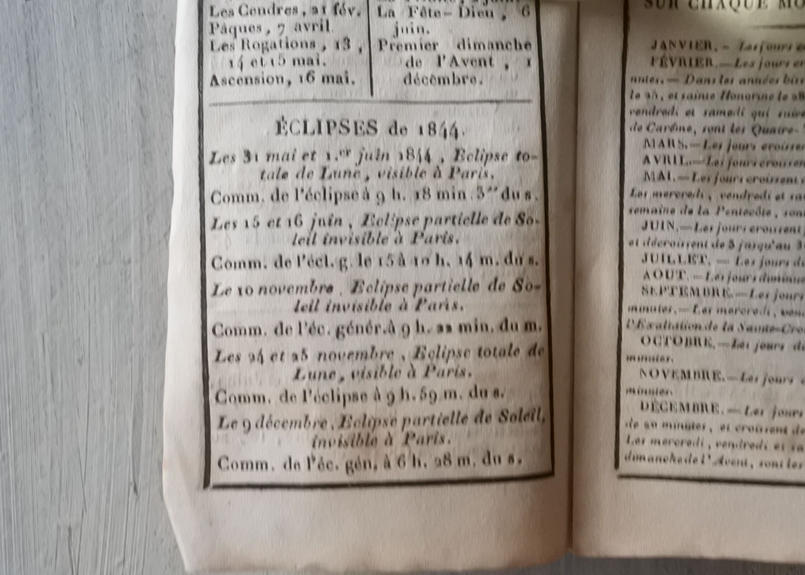 Les Cendres, 21 fév.
Pâques, 7 avril.
Les Rogations, 13,
14 et 15 mai.
Ascension, 16 mai.
La Fête-Dieu, 6
juin.
Premier dimanche
de l'Avent, 1
décembre.
ÉCLIPSES de 1844.
Les 31 mai et 1.er juin 1844, Eclipse to-
tale de Lune, visible à Paris.
Comm. de l'éclipse à 9 h. 18 min. du s.
Les 15 et 16 juin, Eclipse partielle de So-
leil invisible à Paris.
Comm. de l'écl. g. le 15 à 10 h. 14 m. du s.
Le 10 novembre, Eclipse partielle de So-
leil invisible à Paris.
Comm. de l'éc. génér. à 9 h. 22 min. du m.
Les 24 et 25 novembre, Eclipse totale de
Lune, visible à Paris.
Comm. de l'éclipse à 9 h. 59 m. du s.
Le 9 décembre, Eclipse partielle de Soleil,
invisible à Paris.
Comm. de l'éc. gén. à 6 h. 28 m. du s.
SUR CHAQUE MO
JANVIER. — Les jours
FÉVRIER. — Les jours
nutes. — Dans les années bis
le 25, et sainte Honorine le 28
vendredi et samedi qui suiv
de Carême, sont les Quatre-
MARS. — Les jours croissen
AVRIL. — Les jours croissen
MAI. — Les jours croissent
Les mercredi, vendredi et sa
semaine de la Pentecôte, son
JUIN. — Les jours croissent
et décroissent de 3 jusqu'au 3
JUILLET. — Les jours d
AOUT. — Les jours diminu
SEPTEMBRE. — Les jours
minutes. — Les mercredi, ven
l'Exaltation de la Sainte-Cro
OCTOBRE. — Les jours d
minutes.
NOVEMBRE. — Les jours
minutes.
DÉCEMBRE. — Les jours
de 20 minutes, et croissent de
Les mercredi, vendredi et sa
dimanche de l'Avent, sont les